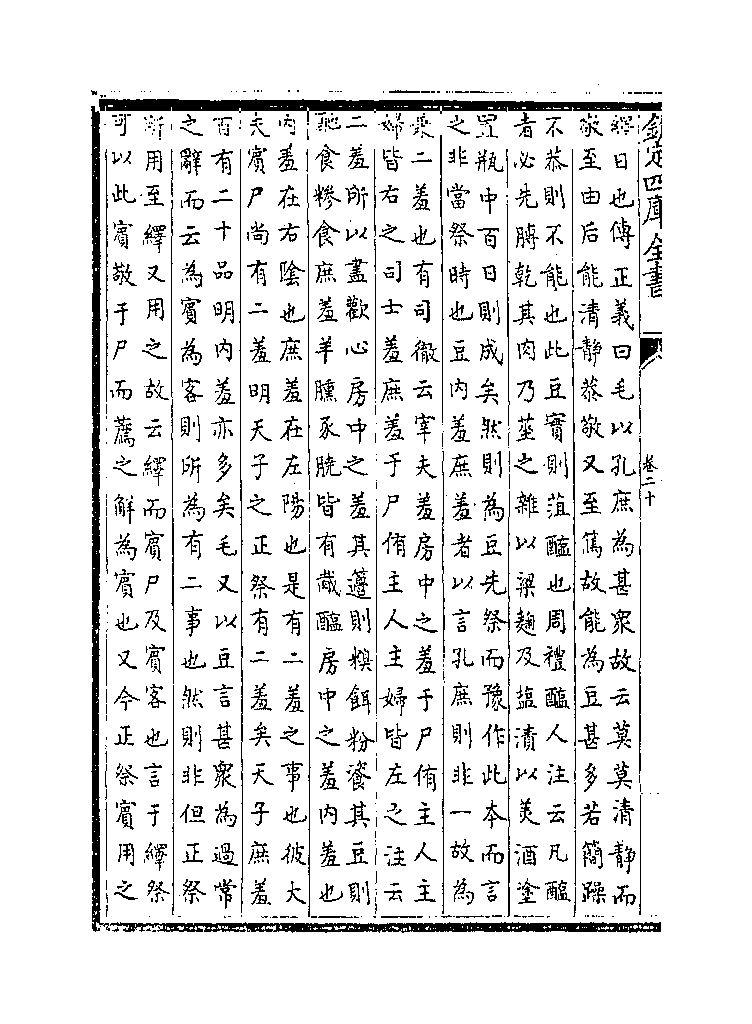 欽定四庫全書
卷二十
繹日也傳正義曰毛以孔庶為甚衆故云莫莫清靜而
敬至由后能清靜恭敬又至篤故能為豆甚多若簡躁
不恭則不能也此豆實則菹醢也周禮醢人注云凡醢
者必先膊乾其肉乃莝之雜以粱麴及塩漬以美酒塗
置瓶中百日則成矣然則為豆先祭而豫作此本而言
之非當祭時也豆内羞庶羞者以言孔庶則非一故為
兼二羞也有司徹云宰夫羞房中之羞于尸侑主人主
婦皆右之司士羞庶羞于尸侑主人主婦皆左之注云
二羞所以盡歡心房中之羞其籩則糗餌粉餈其豆則
酏食糝食庶羞羊臐豕膮皆有胾醢房中之羞内羞也
内羞在右陰也庶羞在左陽也是有二羞之事也彼大
夫賓尸尚有二羞明天子之正祭有二羞矣天子庶羞
百有二十品明内羞亦多矣毛又以豆言甚衆為過常
之辭而云為賓為客則所為有二事也然則非但正祭
所用至繹又用之故云繹而賓尸及賓客也言于繹祭
可以此賓敬于尸而薦之解為賓也又今正祭賓用之